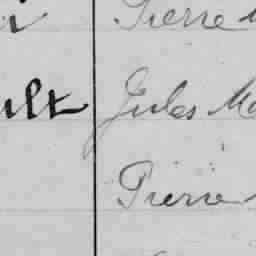 Pierre
ult Jules Ma
Pierre